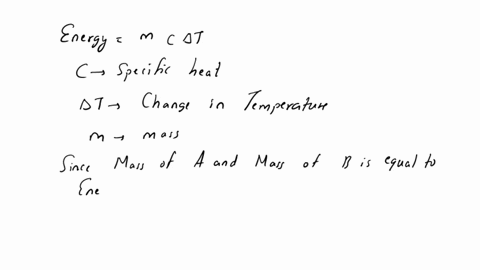 Energy = m c ΔT
C → Specific heat
ΔT → Change in Temperature
m → mass
Since Mass of A and Mass of B is equal to
Ene